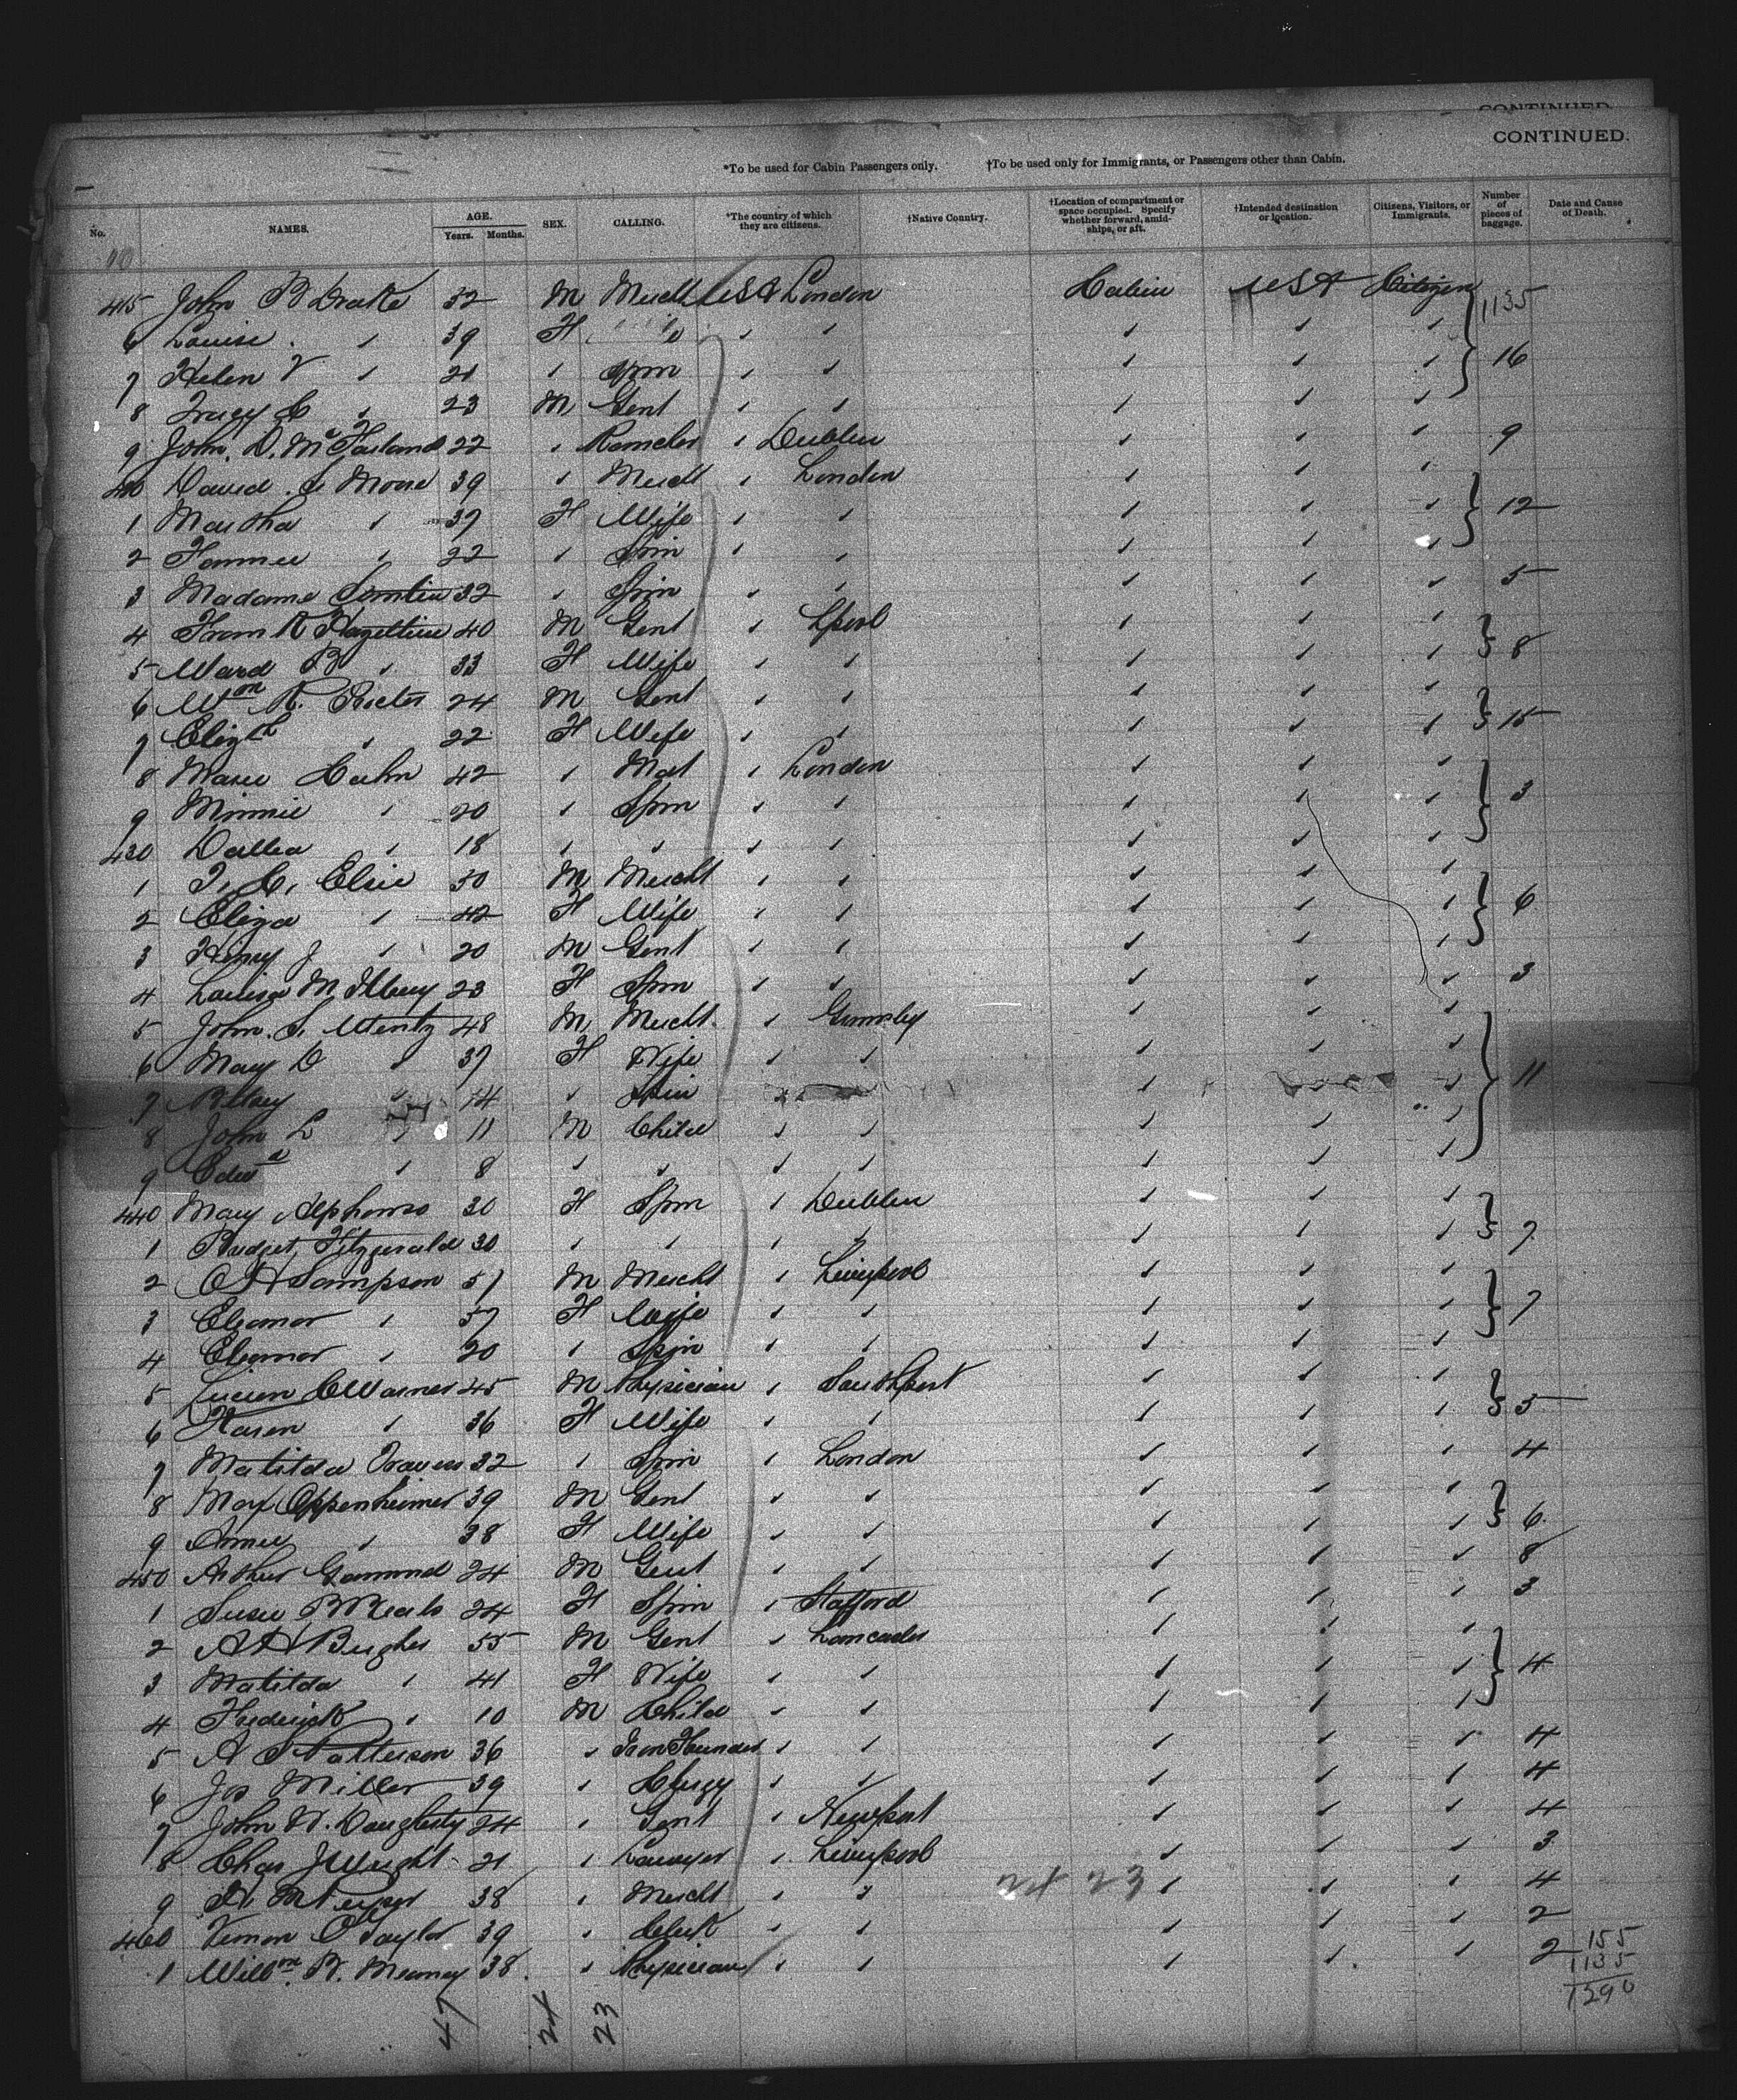 CONTINUED.
CONTINUED.
*To be used for Cabin Passengers only. †To be used only for Immigrants, or Passengers other than Cabin.
No. NAMES. AGE. Years. Months. SEX. CALLING. *The country of which they are citizens. †Native Country. †Location of compartment or space occupied. Specify whether forward, amidships, or aft. †Intended destination or location. Citizens, Visitors, or Immigrants. Number of pieces of baggage. Date and Cause of Death.
415 John B Drake 52 M Mercht USA London Cabin USA Citizen 1135
6 Louise " 39 F " "
7 Helen V " 21 " Spin " " 16
8 Tracy C " 23 M Gent " "
9 John. D. McFarland 22 " Rancher " Dublin 9
420 David. S Moore 39 " Mercht " London
1 Martha " 37 F Wife " " 12
2 Fannie " 22 " Spin " "
3 Madame 32 " Spin " " 5
4 Hazeltine 40 M Gent " Lpool
5 Ward B " 33 F Wife " " 8
6 Wm R. Procter 24 M Gent " "
7 Elizth " 22 F Wife " " 15
8 Marie Hahn 42 " Mat " London
9 Minnie " 20 " Spin " " 3
430 " 18 " " " "
1 T. C. 50 M Mercht " "
2 Eliza " 42 F Wife " " 6
3 Henry J " 20 M Gent " "
4 Louisa M 23 F Spin " " 3
5 John. S. Mentz 48 M Mercht. " Grimsby
6 Mary D " 37 F Wife " "
7 " 14 " Spin " " 11
8 John L " 11 M Child " "
9 Edwd " 8 " " " "
440 Mary Alphonso 30 F Spin " Dublin
1 Bridget Fitzgerald 30 " " " " 7
2 O H Sampson 51 M Mercht " Liverpool
3 Eleanor " 57 F Wife " " 7
4 Eleanor " 20 " Spin " "
5 Lucien C Warner 45 M Physician " Southport
6 Karen " 36 F Wife " " 5
7 Matilda Travers 32 " Spin " London 4
8 Max Oppenheimer 39 M Gent " "
9 " 38 F Wife " " 6
450 Arthur Gammond 24 M Gent " " 8
1 Susie B Meals 24 F Spin " Stafford 3
2 A H Bughes 55 M Gent " Lancaster
3 Matilda " 41 F Wife " " 4
4 Frederick " 10 M Child " "
5 A S Patterson 36 " Iron Founder " " 4
6 Jos Miller 39 " Clergy " " 4
7 John W. Daugherty 24 " Gent " Newport 4
8 Chas J Wright 21 " Lawyer " Liverpool 3
9 38 " Mercht " " 4
24 23
460 Vernon O Taylor 39 " Clerk " " 2
1 Willm. R. 38 " Physician " " 2
155
1135
1290
47 24 23